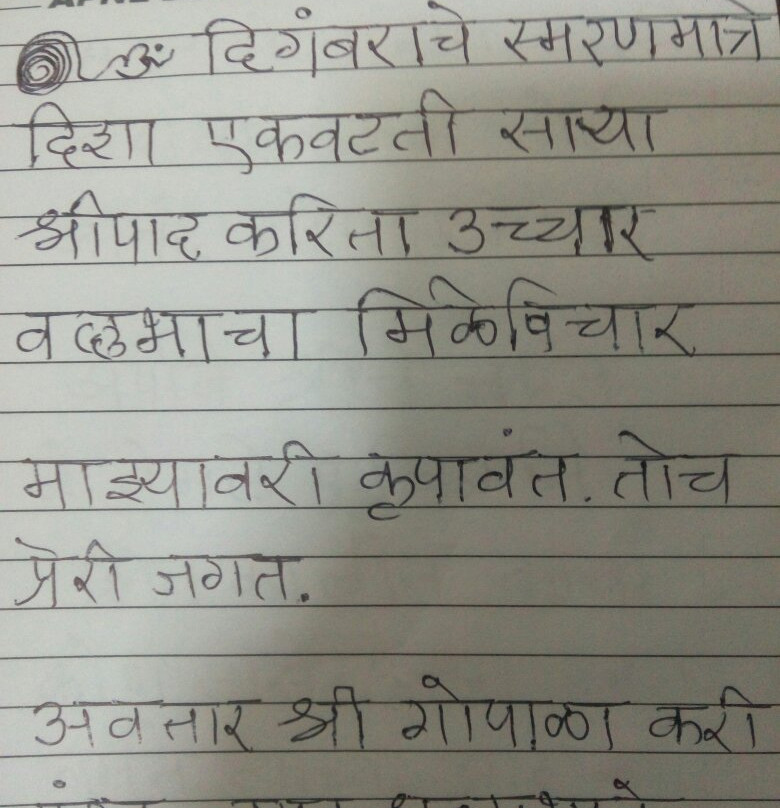 ॐ दिगंबराचे स्मरणमात्रे
दिशा एकवटती साऱ्या
श्रीपाद करिता उच्चार
वल्लभाचा मिळे विचार
माझ्यावरी कृपावंत. तोच
प्रेरी जगत.
अवतार श्री गोपाळा करी